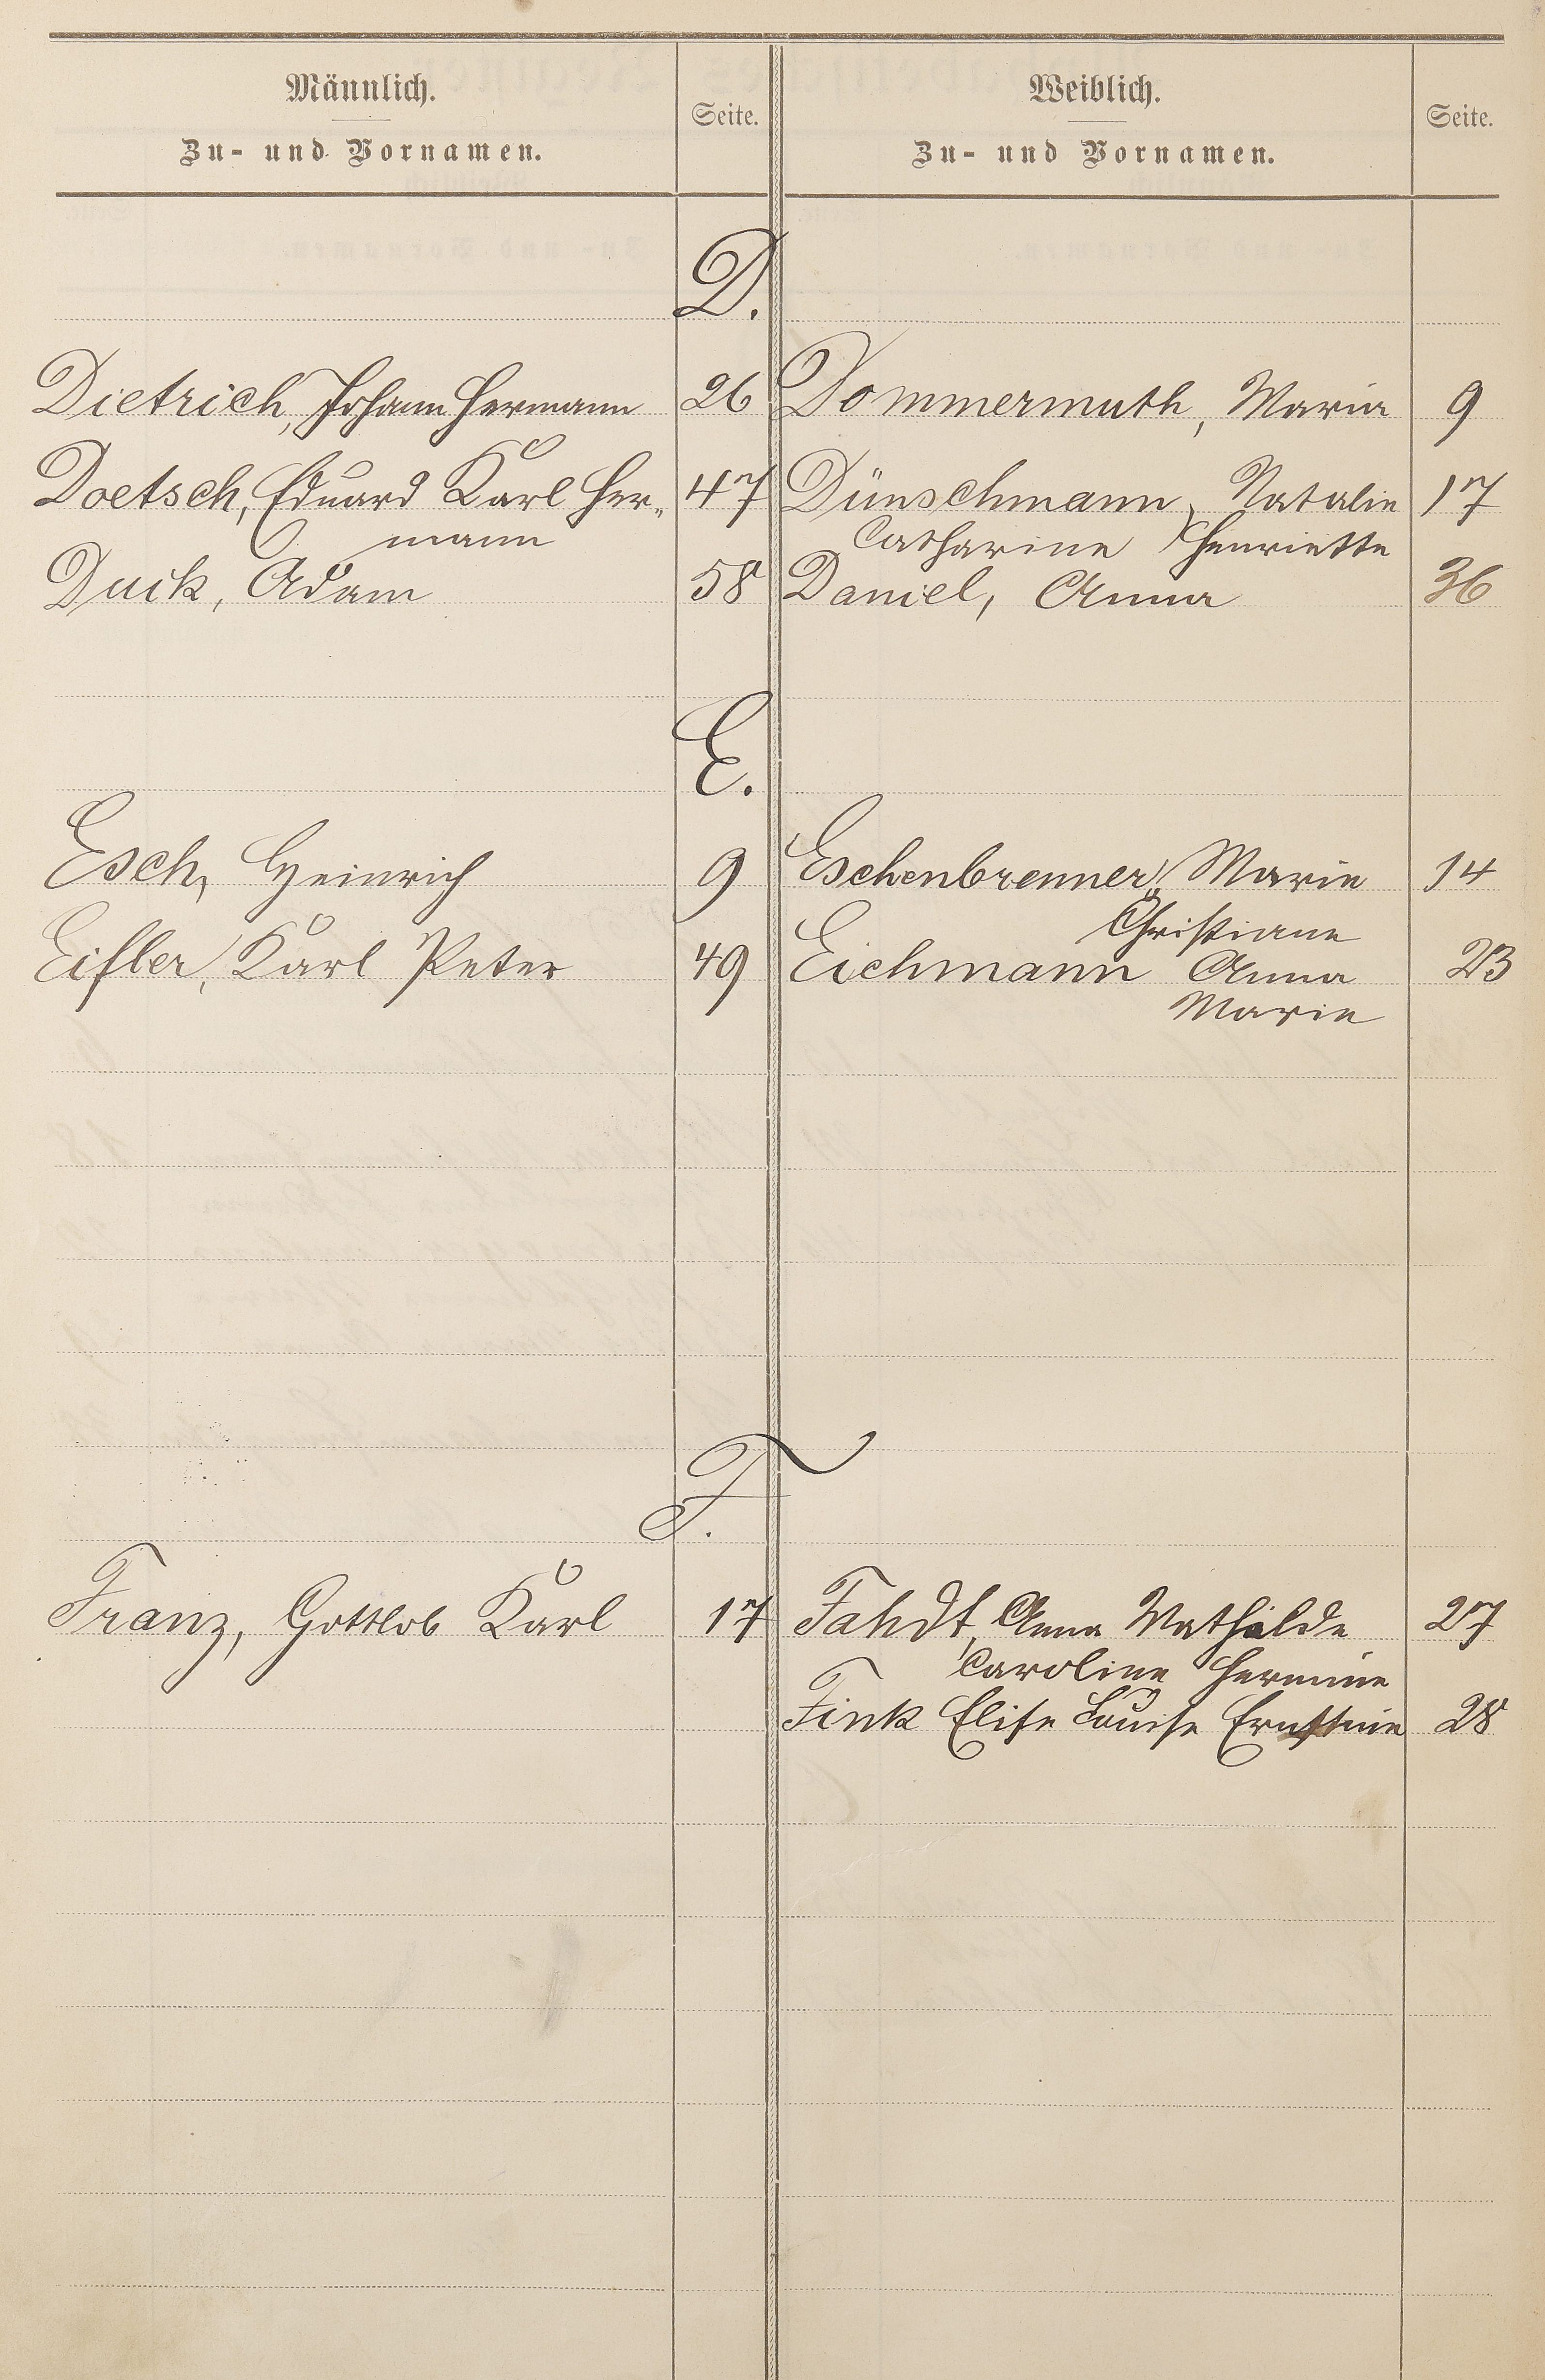 Männlich. Weiblich.
Seite. Seite.
Zu- und Vornamen. Zu- und Vornamen.
D.
Dietrich, Johann Hermann 26 Dommermuth, Maria 9
Doetsch, Eduard Karl Her- 47 Dünschmann, Natalie 17
mann Catharine Henriette
Duik, Adam 58 Daniel, Anna 36
E.
Esch, Heinrich 9 Eschenbrenner, Marie 14
Christiane
Eifler, Karl Peter 49 Eichmann Anna 23
Marie
F.
Franz, Gottlob Karl 17 Fahdt, Anna Mathilde 27
Caroline Hermine
Fink Elise Louise Ernstine 28